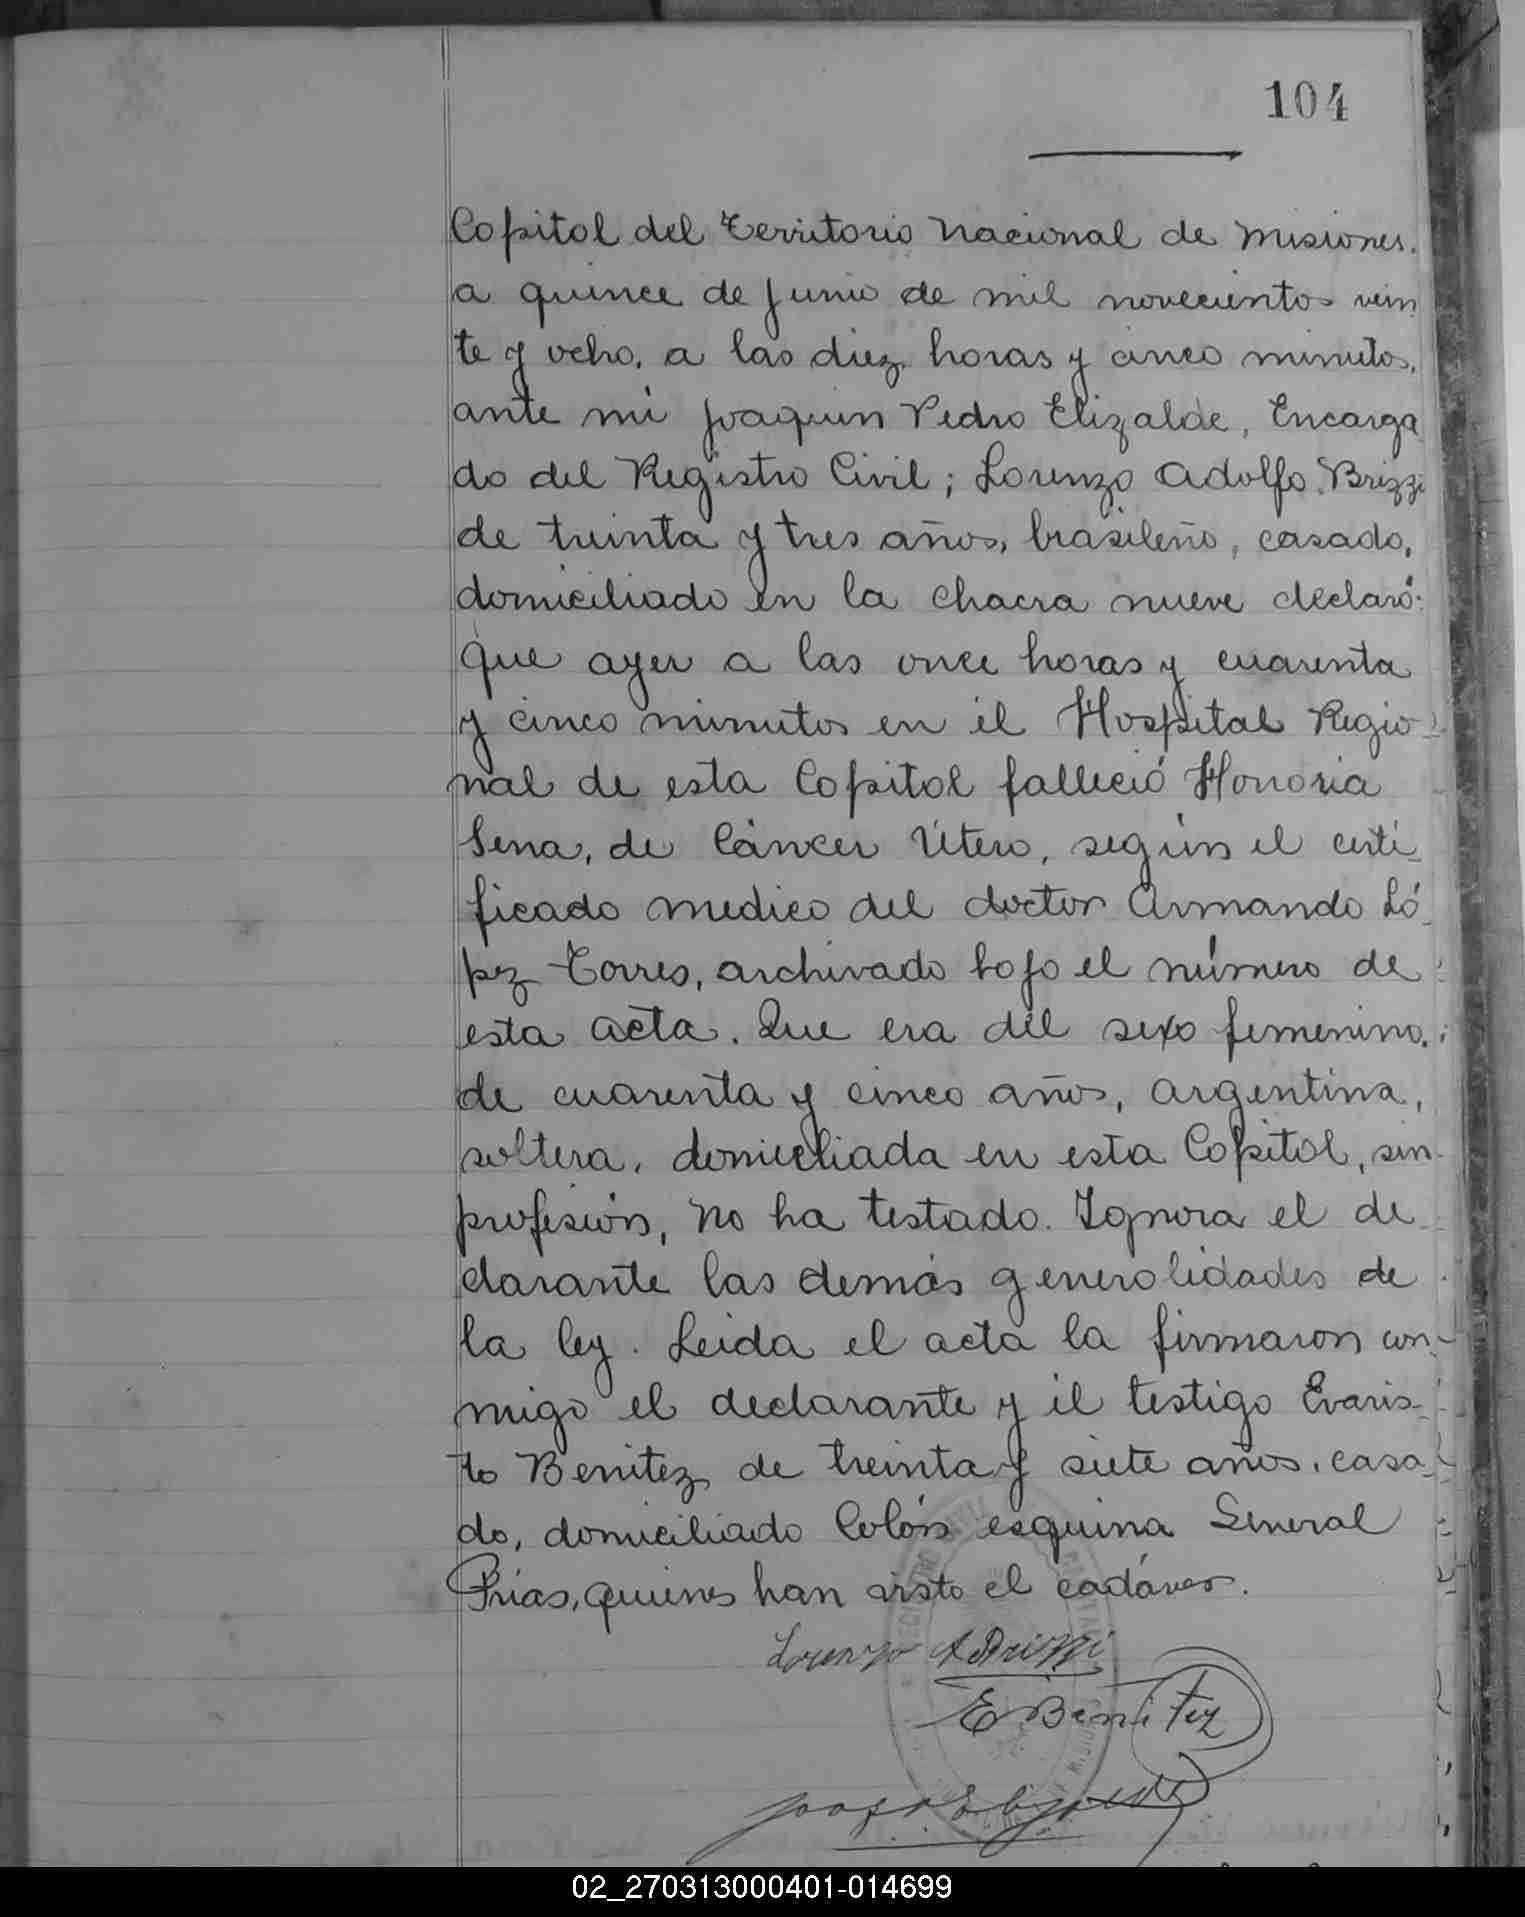 104
Capital del Territorio Nacional de Misiones.
a quince de Junio de mil novecientos vein
te y ocho, a las diez horas y cinco minutos,
ante mi Joaquin Pedro Elizalde, Encarga
do del Registro Civil; Lorenzo Adolfo Brizzi
de treinta y tres años, brasileño, casado,
domiciliado en la chacra nueve declaró:
que ayer a las once horas y cuarenta
y cinco minutos en el Hospital Regio-
nal de esta Capital falleció Honoria
Sena, de Cáncer Útero, según el certi-
ficado medico del doctor Armando Ló-
pez Torres, archivado bajo el número de
esta acta. Que era del sexo femenino,
de cuarenta y cinco años, argentina,
soltera, domiciliada en esta Capital, sin
profesión, no ha testado. Ignora el de-
clarante las demás generalidades de
la ley. Leida el acta la firmaron con-
migo el declarante y el testigo Evaris-
to Benitez de treinta y siete años, casa-
do, domiciliado Colón esquina General
Frías, quienes han visto el cadáver.
Lorenzo A Brizzi
E Benitez
02_270313000401-014699